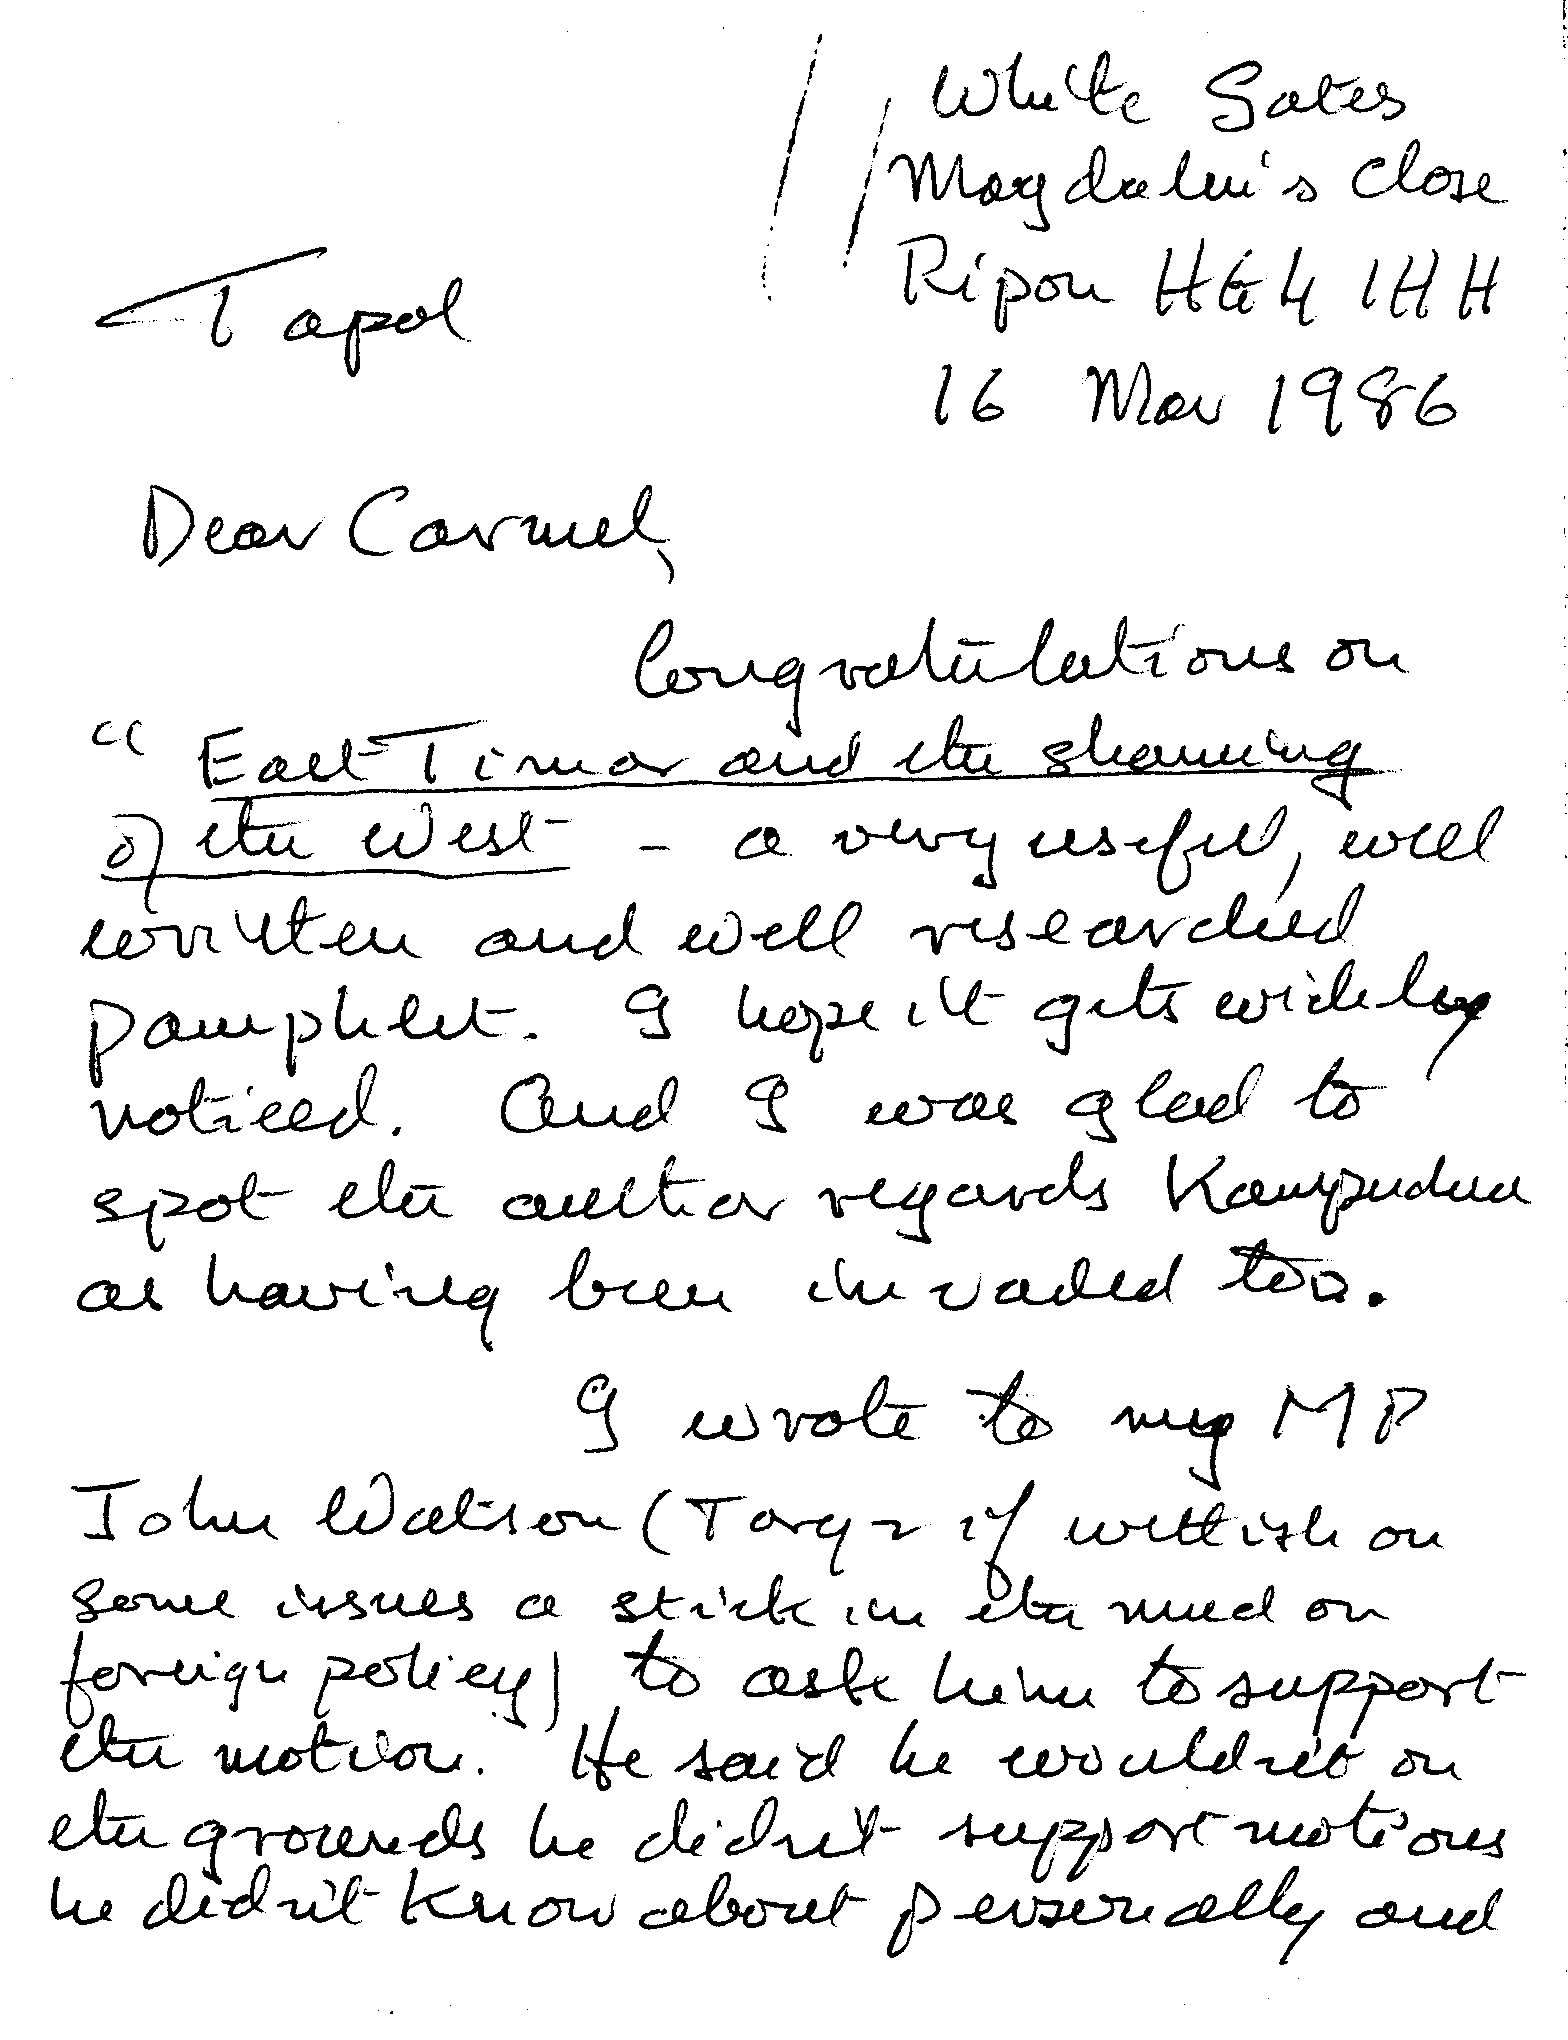 White Gates
Magdalen's Close
Ripon HG4 1HH
Tapol
16 Mar 1986
Dear Carmel,
Congratulations on
" East Timor and the shaming
of the West - a very useful, well
written and well researched
pamphlet. I hope it gets widely
noticed. And I was glad to
spot the author regards Kampuchea
as having been invaded too.
I wrote to my MP
John Watson (Tory - if wettish on
some issues a stick in the mud on
foreign policy) to ask him to support
the motion. He said he wouldn't on
the grounds he didn't support motions
he didn't know about personally and